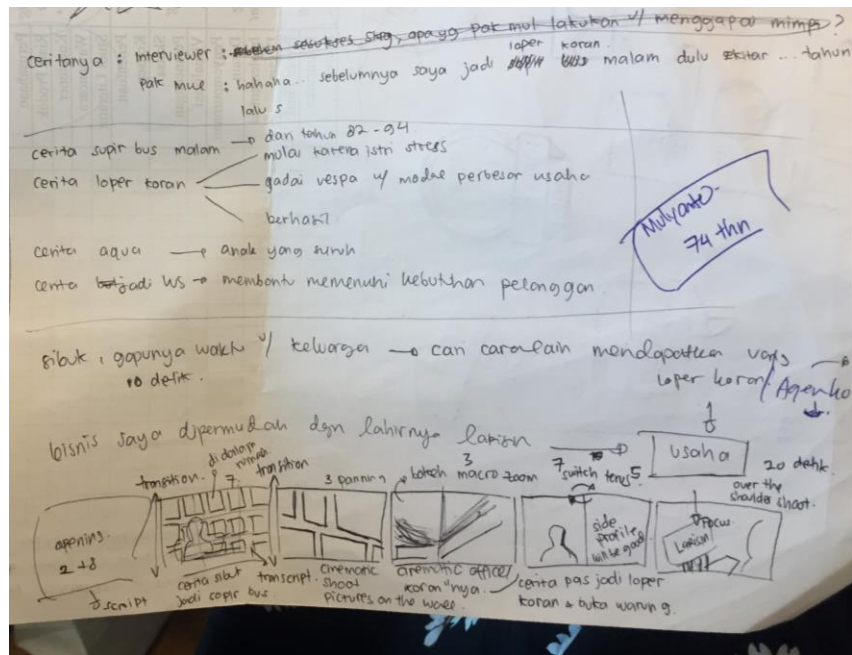 ceritanya : Interviewer : sebelum sesukses skrg, apa yg pak mul lakukan u/ menggapai mimpi ?
pak mul : hahaha... sebelumnya saya jadi loper koran malam dulu sekitar ... tahun
lalu s
cerita supir bus malam → dari tahun 82 - 94
mulai karena istri stress
cerita loper koran
gadai vespa u/ modal perbesar usaha
berhasil
cerita aqua → anak yang suruh
cerita jadi WS → membantu memenuhi kebutuhan pelanggan.
Mulyanto.
74 thn
sibuk, gapunya waktu u/ keluarga → cari cara lain mendapatkan uang
10 detik.
loper koran/Agen ko
bisnis saya dipermudah dgn lahirnya larisin
usaha
20 detik.
transition.
di dalam rumna
7.
transition
3 panning
bokeh
3
macro zoom
7
switch terus 5
over the
shoulder shoot.
opening.
2 + 8
side
profile
will be good
Focus
Larisin
script
cerita sibuk
jadi sopir bus.
transcript.
cinematic
shoot
pictures on the wall.
cinematic office/
koran"nya.
cerita pas jadi loper
koran & buka warung.